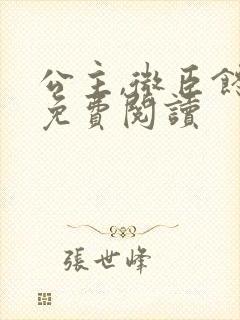 公主,微臣
免費閱讀
張世峰